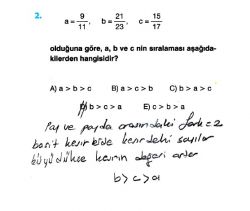 2. a = 9/11, b = 21/23, c = 15/17
olduğuna göre, a, b ve c nin sıralaması aşağıda-
kilerden hangisidir?
A) a > b > c B) a > c > b C) b > a > c
D) b > c > a E) c > b > a
Pay ve payda arasındaki fark = 2
basit kesirlerde kesirdeki sayılar
büyüdükçe kesrin değeri artar
b > c > a